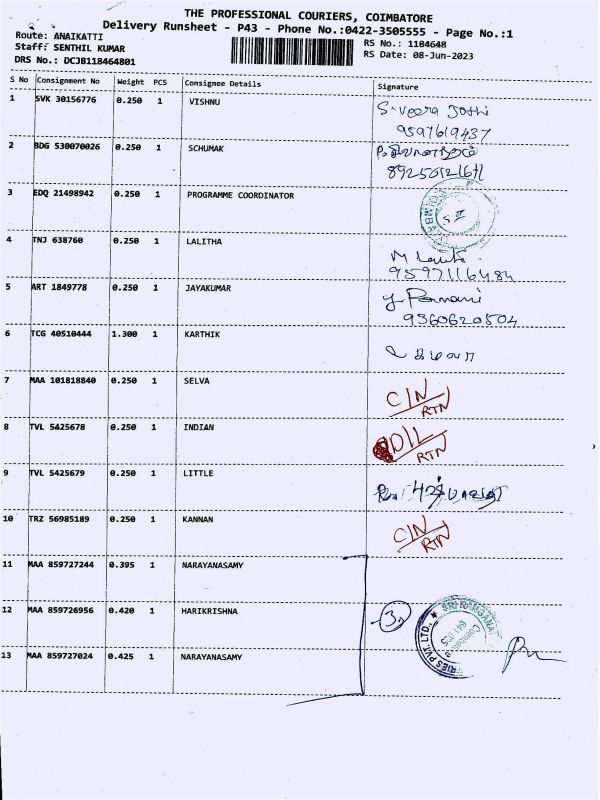 THE PROFESSIONAL COURIERS, COIMBATORE
Delivery Runsheet - P43 - Phone No.:0422-3505555 - Page No.:1
Route: ANAIKATTI
Staff: SENTHIL KUMAR
DRS No.: DCJB118464801
RS No.: 1184648
RS Date: 08-Jun-2023
S No Consignment No Weight PCS Consignee Details Signature
1 SVK 30156776 0.250 1 VISHNU S.Veera Jothi
9597619437
2 BDG 530070026 0.250 1 SCHUMAK
3 EDQ 21498942 0.250 1 PROGRAMME COORDINATOR
4 TNJ 638760 0.250 1 LALITHA
9597116484
5 ART 1849778 0.250 1 JAYAKUMAR
9360620504
6 TCG 40510444 1.300 1 KARTHIK
7 MAA 101818840 0.250 1 SELVA C/N
RTN
8 TVL 5425678 0.250 1 INDIAN D/L
RTN
9 TVL 5425679 0.250 1 LITTLE
10 TRZ 56985189 0.250 1 KANNAN C/N
RTN
11 MAA 859727244 0.395 1 NARAYANASAMY
12 MAA 859726956 0.420 1 HARIKRISHNA 3
13 MAA 859727024 0.425 1 NARAYANASAMY